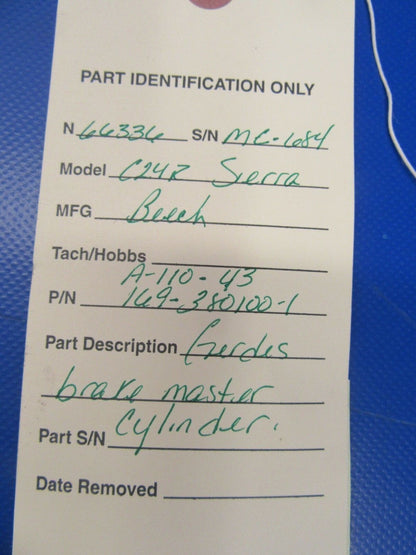 PART IDENTIFICATION ONLY
N 66336 S/N MC-684
Model C24R Sierra
MFG Beech
Tach/Hobbs
A-110-43
P/N 169-380100-1
Part Description Gerdes
brake master
cylinder.
Part S/N
Date Removed